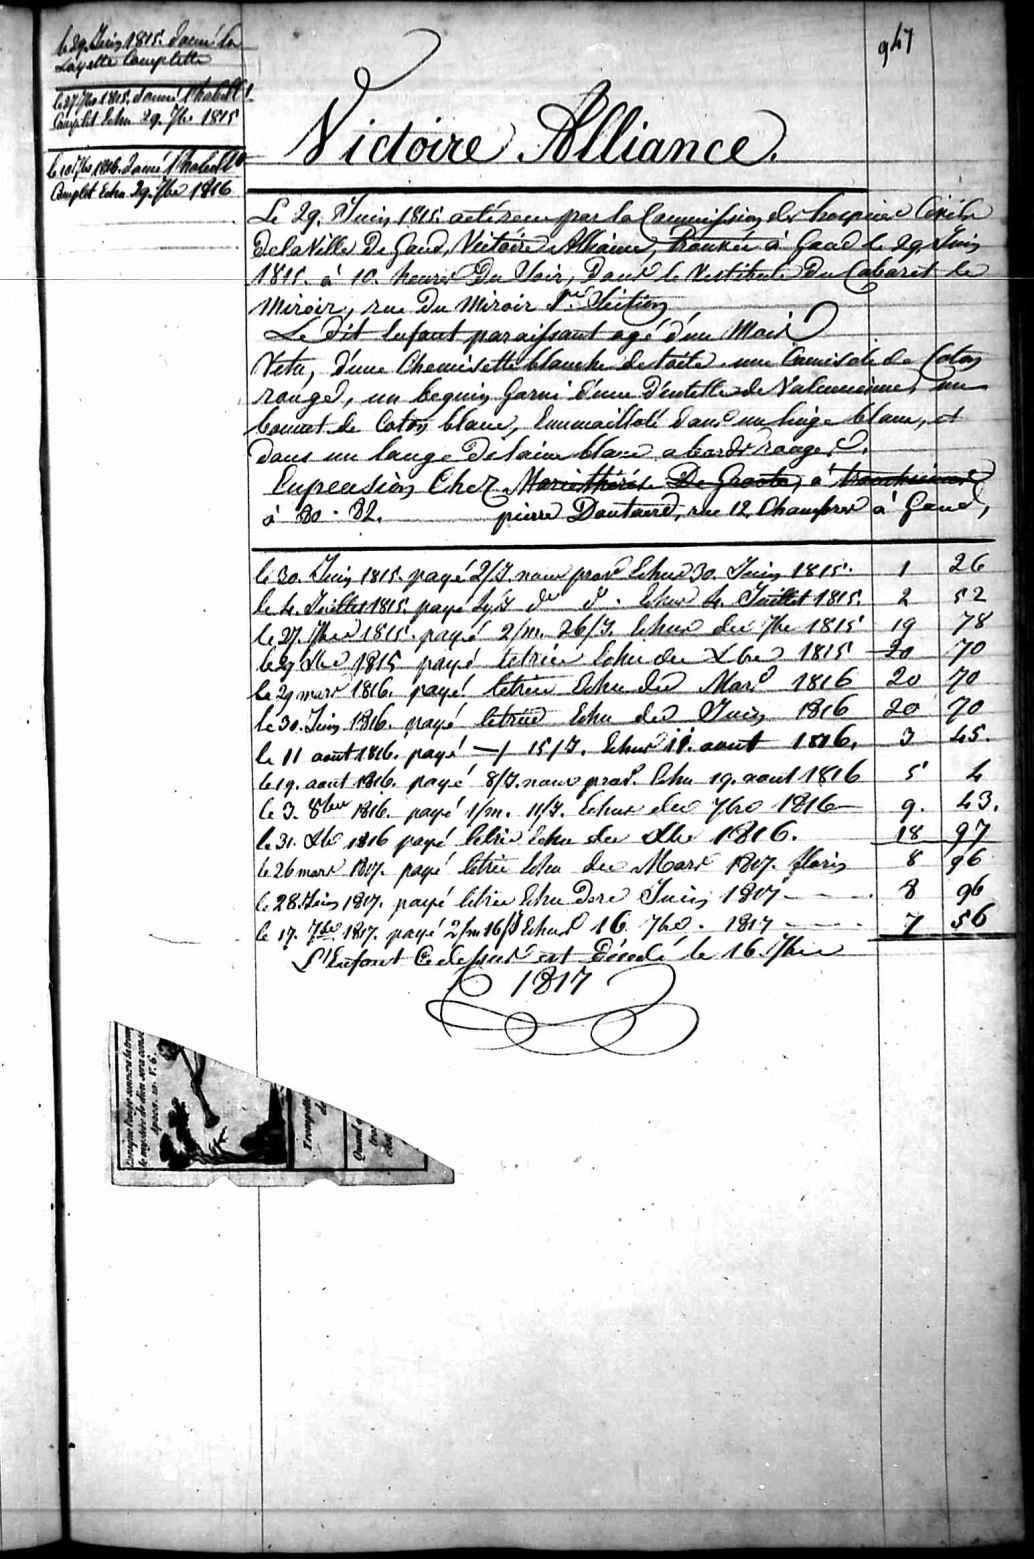 947
le 29. Juin 1815. donné la
Layette Complette
le 27. 7bre 1815. donné l'habill.t
Complet Echu 29. 7bre 1815
le 10 7bre 1816. donné l'habill.t
Complet Echu 29. 7bre 1816
Victoire Alliance.
Le 29. Juin 1815. a été recu par la Commission des hospices Civils
de la Ville De Gand, Victoire Alliance, Trouvée à Gand le 29. Juin
1815. à 10. heures Du Soir, Dans le Vestibule Du Cabaret le
Miroir, rue Du Miroir Section
Le dit Enfant paraissant agé d'un Mois
Vetu, d'une Chemisette blanche de toile. une Camisole de Coton
rouge, un beguin Garni d'une Dentelle de Valencienne, un
bonnet de Coton blanc, Emmaillotté dans un linge blanc, et
dans un lange de laine blanc a bords rouges.
En pension Chez Marie Thérése De Groote, à
à 30 - 32. pierre Dontaine, rue 12. Chambres à Gand,
le 30. Juin 1815. payé 2/J. nouv. prov. Echus 30. Juin 1815. 1 26
le 4. Juillet 1815. payé 4/J d.o d.o. Echus 4. Juillet 1815. 2 52
le 27. 7bre 1815. payé 2/m. 26/J. Echus du 7bre 1815 19 78
le 29 Xbre 1815 payé letrée Echu du Xbre 1815 20 70
le 29 mars 1816. payé letrée Echu du Mars 1816 20 70
le 30. Juin 1816. payé letrée Echu du Juin 1816 20 70
le 11 août 1816. payé 15/J. Echus 11. aout 1816. 3 45.
le 19. aout 1816. payé 8/J. nouv. prov. Echu 19. aout 1816 5 4
le 3. 8bre 1816. payé 1/m. 11/J. Echus du 7bre 1816 9. 43.
le 31. Xbre 1816 payé letrée Echu du Xbre 1816. 18 97
le 26 mars 1817. payé letrée Echu du Mars 1817. floris 8 96
le 28. Juin 1817. payé letrée Echu de Juin 1817 8 96
le 17. 7bre 1817. payé 2/m 16/J Echus 16. 7bre. 1817 7 56
L'Enfant Cidessus est Décedé le 16. 7bre
1817